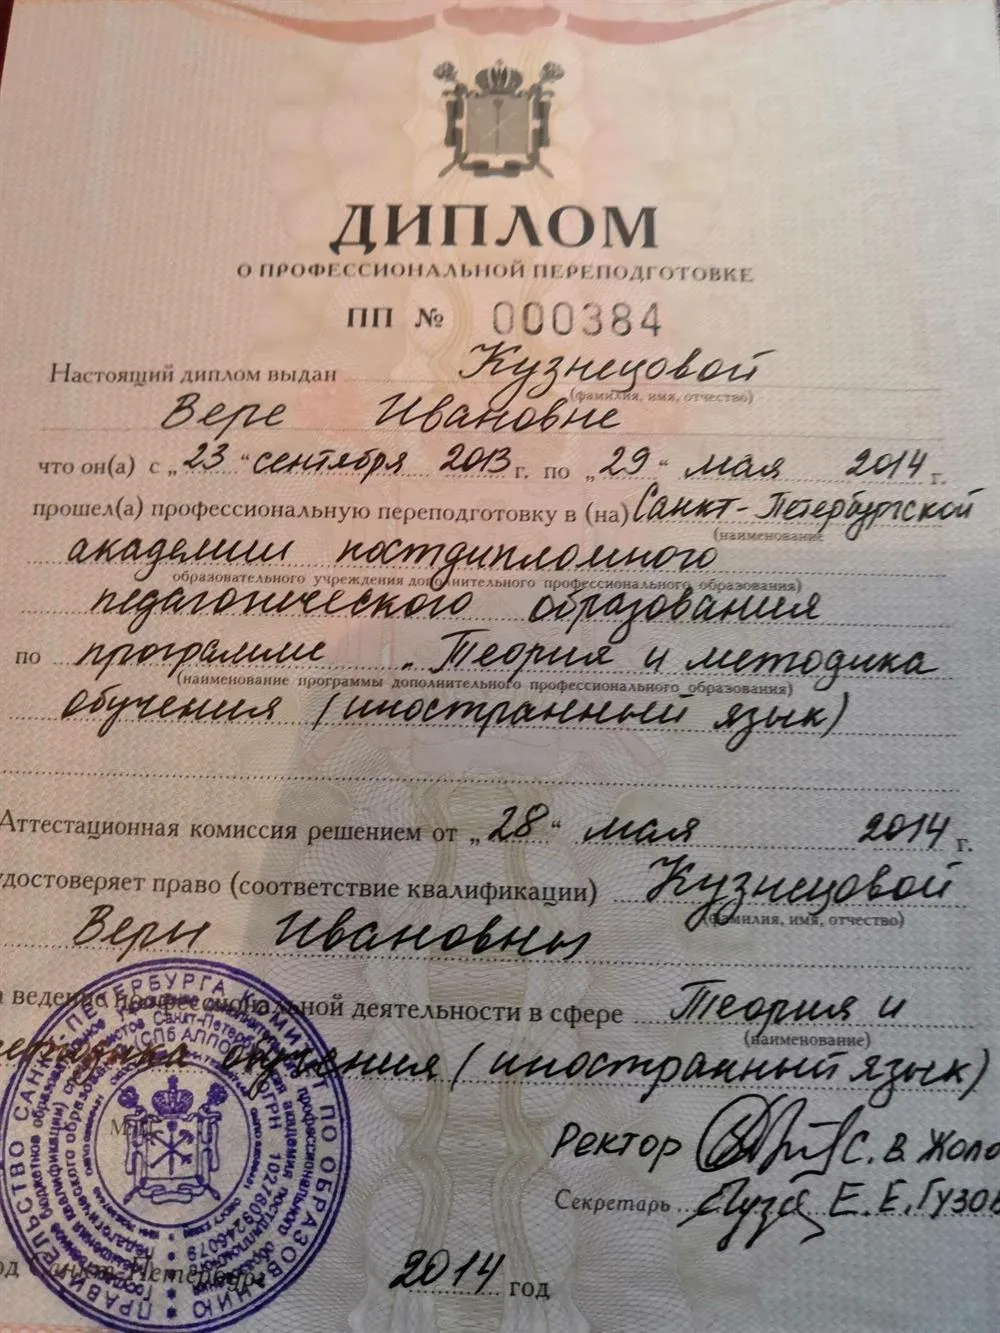 ДИПЛОМ
О ПРОФЕССИОНАЛЬНОЙ ПЕРЕПОДГОТОВКЕ
ПП № 000384
Настоящий диплом выдан Кузнецовой
(фамилия, имя, отчество)
Вере Ивановне
что он(а) с „23“ сентября 2013 г. по „29“ мая 2014 г.
прошел(а) профессиональную переподготовку в (на) Санкт-Петербургской
(наименование
академии постдипломного
образовательного учреждения дополнительного профессионального образования)
педагогического образования
по программе „Теория и методика
(наименование программы дополнительного профессионального образования)
обучения (иностранный язык)
Аттестационная комиссия решением от „28“ мая 2014 г.
удостоверяет право (соответствие квалификации) Кузнецовой
(фамилия, имя, отчество)
Веры Ивановны
а ведение профессиональной деятельности в сфере Теория и
(наименование)
методика обучения (иностранный язык)
Ректор С. В. Жоло
Секретарь Е. Е. Гузов
од Санкт-Петербург
2014 год
ПРАВИТЕЛЬСТВО САНКТ-ПЕТЕРБУРГА КОМИТЕТ ПО ОБРАЗОВАНИЮ
ОГРН 1027809246079